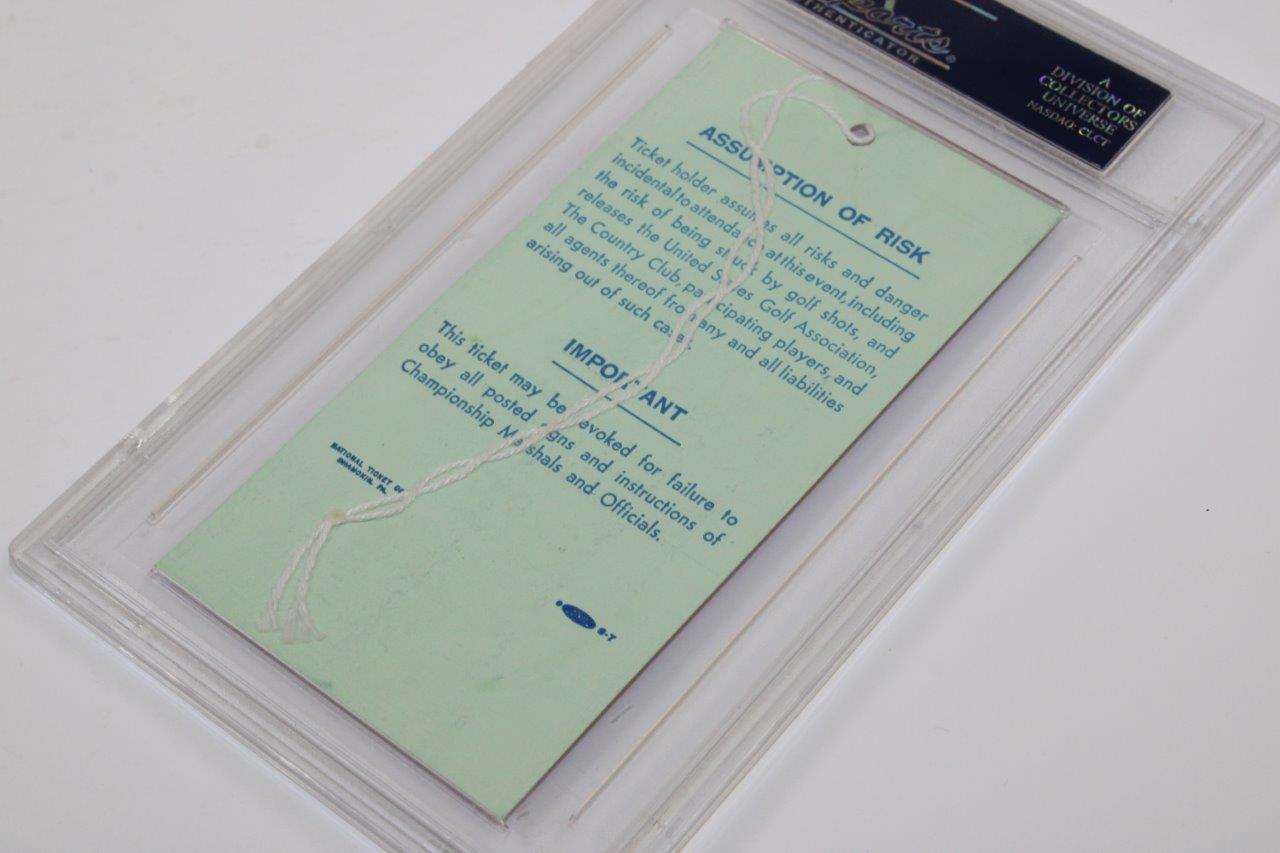 THENTICATOR
A
DIVISION OF
COLLECTORS
UNIVERSE
NASDAQ: CLCT
ASSUMPTION OF RISK
Ticket holder assumes all risks and danger
incidental to attendance at this event, including
the risk of being struck by golf shots, and
releases the United States Golf Association,
The Country Club, participating players, and
all agents thereof from any and all liabilities
arising out of such cases.
IMPORTANT
This ticket may be revoked for failure to
obey all posted signs and instructions of
Championship Marshals and Officials.
NATIONAL TICKET CO
SHAMOKIN, PA.